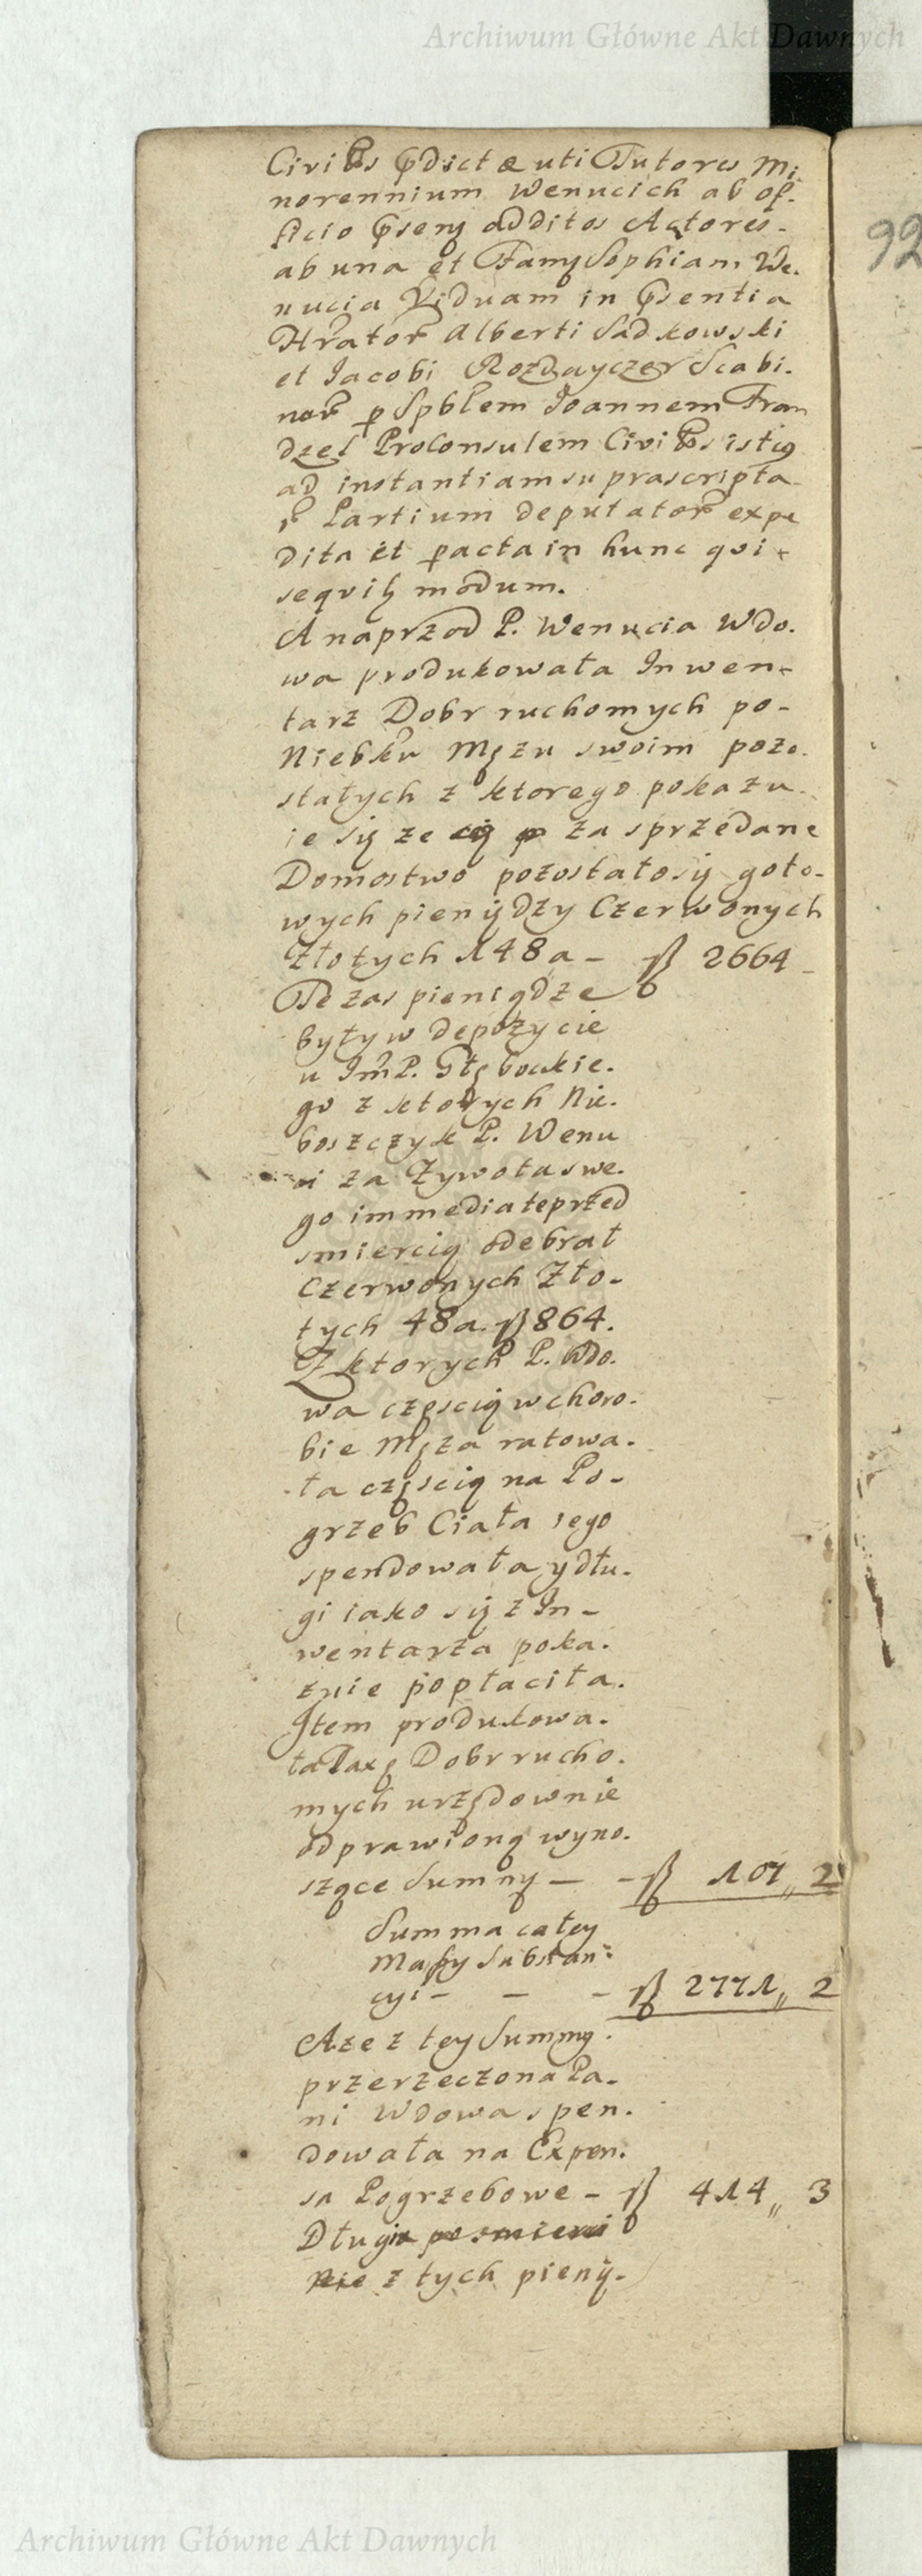 Archiwum Główne Akt Dawnych
Civitts pdictæ uti Tutores Mi.
norennium Wenucich ab of.
ficio pseng additos Actores.
ab una et Famę Sophiam We.
nucia Viduam in psentia
Hrator Alberti Sadkowski
et Jacobi Rozdayczer Scabi.
nor p Spblem Joannem Fran
dzel Proconsulem Civittis istiq
ad instantiam supra scripta
r Partium deputator expe
dita et pacta in hunc qvi.
seqvit modum.
A naprzod P. Wenucia Wdo.
wa produkowała Inwen-
tarz Dobr ruchomych po-
Niebku Mężu swoim pozo.
stałych z ktorego pokazu.
ie się ze za sprzedane
Domostwo pozostało się goto-
wych pieniędzy Czerwonych
Złotych 148 a - ƒ 2664
Te zas pieniądze
były w depozycie
u Jm P. Głębockie.
go z ktorych Nie.
boszczyk P. Wenu
ci za Zywota swe.
go immediate przed
smiercią odebrał
Czerwonych Zło-
tych 48 a. ƒ 864.
Z ktorych P. Wdo.
wa częscią w choro.
bie Męża ratowa.
ła częscią na Po-
grzeb Ciała iego
spendowała y dłu.
gi iako się z In-
wentarza poka.
zuie popłaciła.
Item produkowa.
ła Taxę Dobr rucho.
mych urzędownie
odprawioną wyno.
szące Summy - - ƒ 107,, 2
Summa całey
Massy Substan:
cyi - - - ƒ 2771,, 2
A ze z tey Summy.
przerzeczona Pa.
ni Wdowa spen.
dowała na Expen.
sa Pogrzebowe - ƒ 414,, 3
Długi po smierci
Nie z tych pienię.
92
Archiwum Główne Akt Dawnych